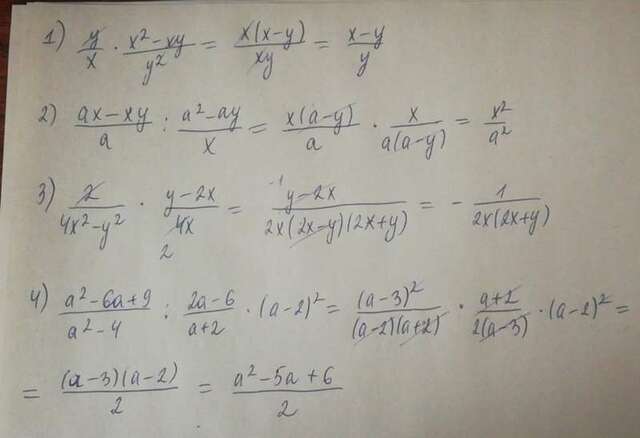 1) y/x · (x² - xy)/y² = x(x-y)/xy = (x-y)/y
2) (ax - xy)/a : (a² - ay)/x = x(a-y)/a · x/(a(a-y)) = x²/a²
3) 2/(4x² - y²) · (y - 2x)/4x 2 = -1 (y - 2x)/(2x(2x-y)(2x+y)) = - 1/(2x(2x+y))
4) (a² - 6a + 9)/(a² - 4) : (2a - 6)/(a+2) · (a-2)² = (a-3)²/((a-2)(a+2)) · (a+2)/(2(a-3)) · (a-2)² =
= (a-3)(a-2)/2 = (a² - 5a + 6)/2